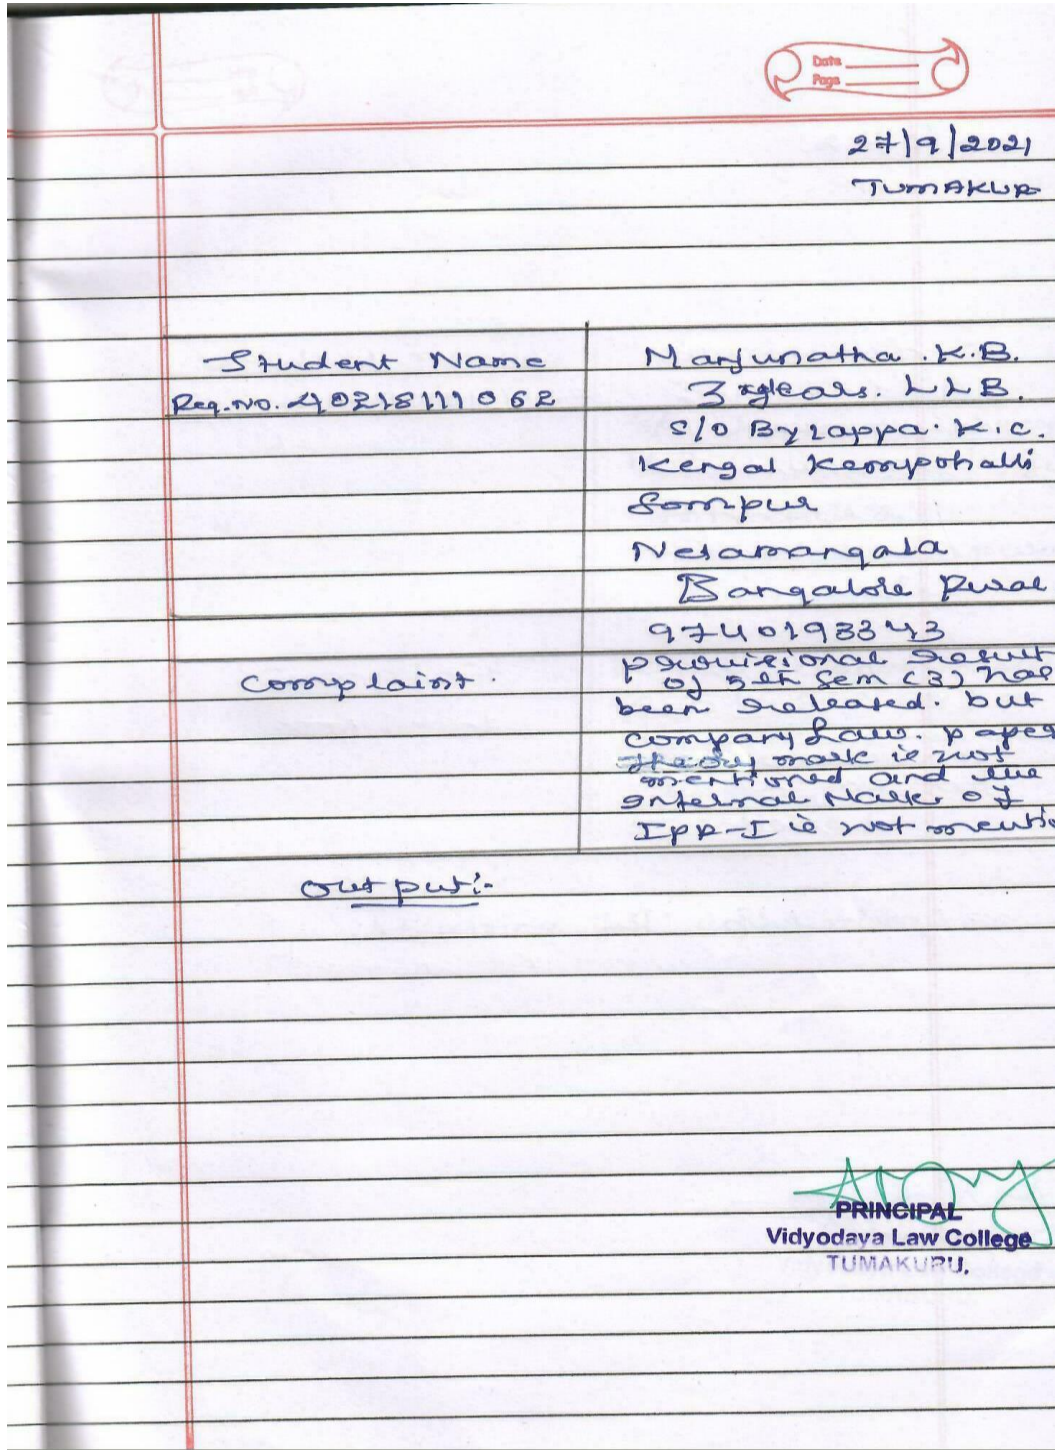 Date
Page
27/9/2021
TUMAKUR
Student Name
Manjunatha . K.B.
Reg.No. 40218111062
3 years. LLB.
S/O Byrappa. K.C.
Kengal Kempohalli
Sompur
Nelamangala
Bangalore Rural
9740193343
Complaint.
provisional result
of 5th Sem (3) has
been released. but
company Law. paper
theory mark is not
mentioned and the
internal Mark of
IPR-I is not mentio
Output:-
PRINCIPAL
Vidyodaya Law College
TUMAKURU.